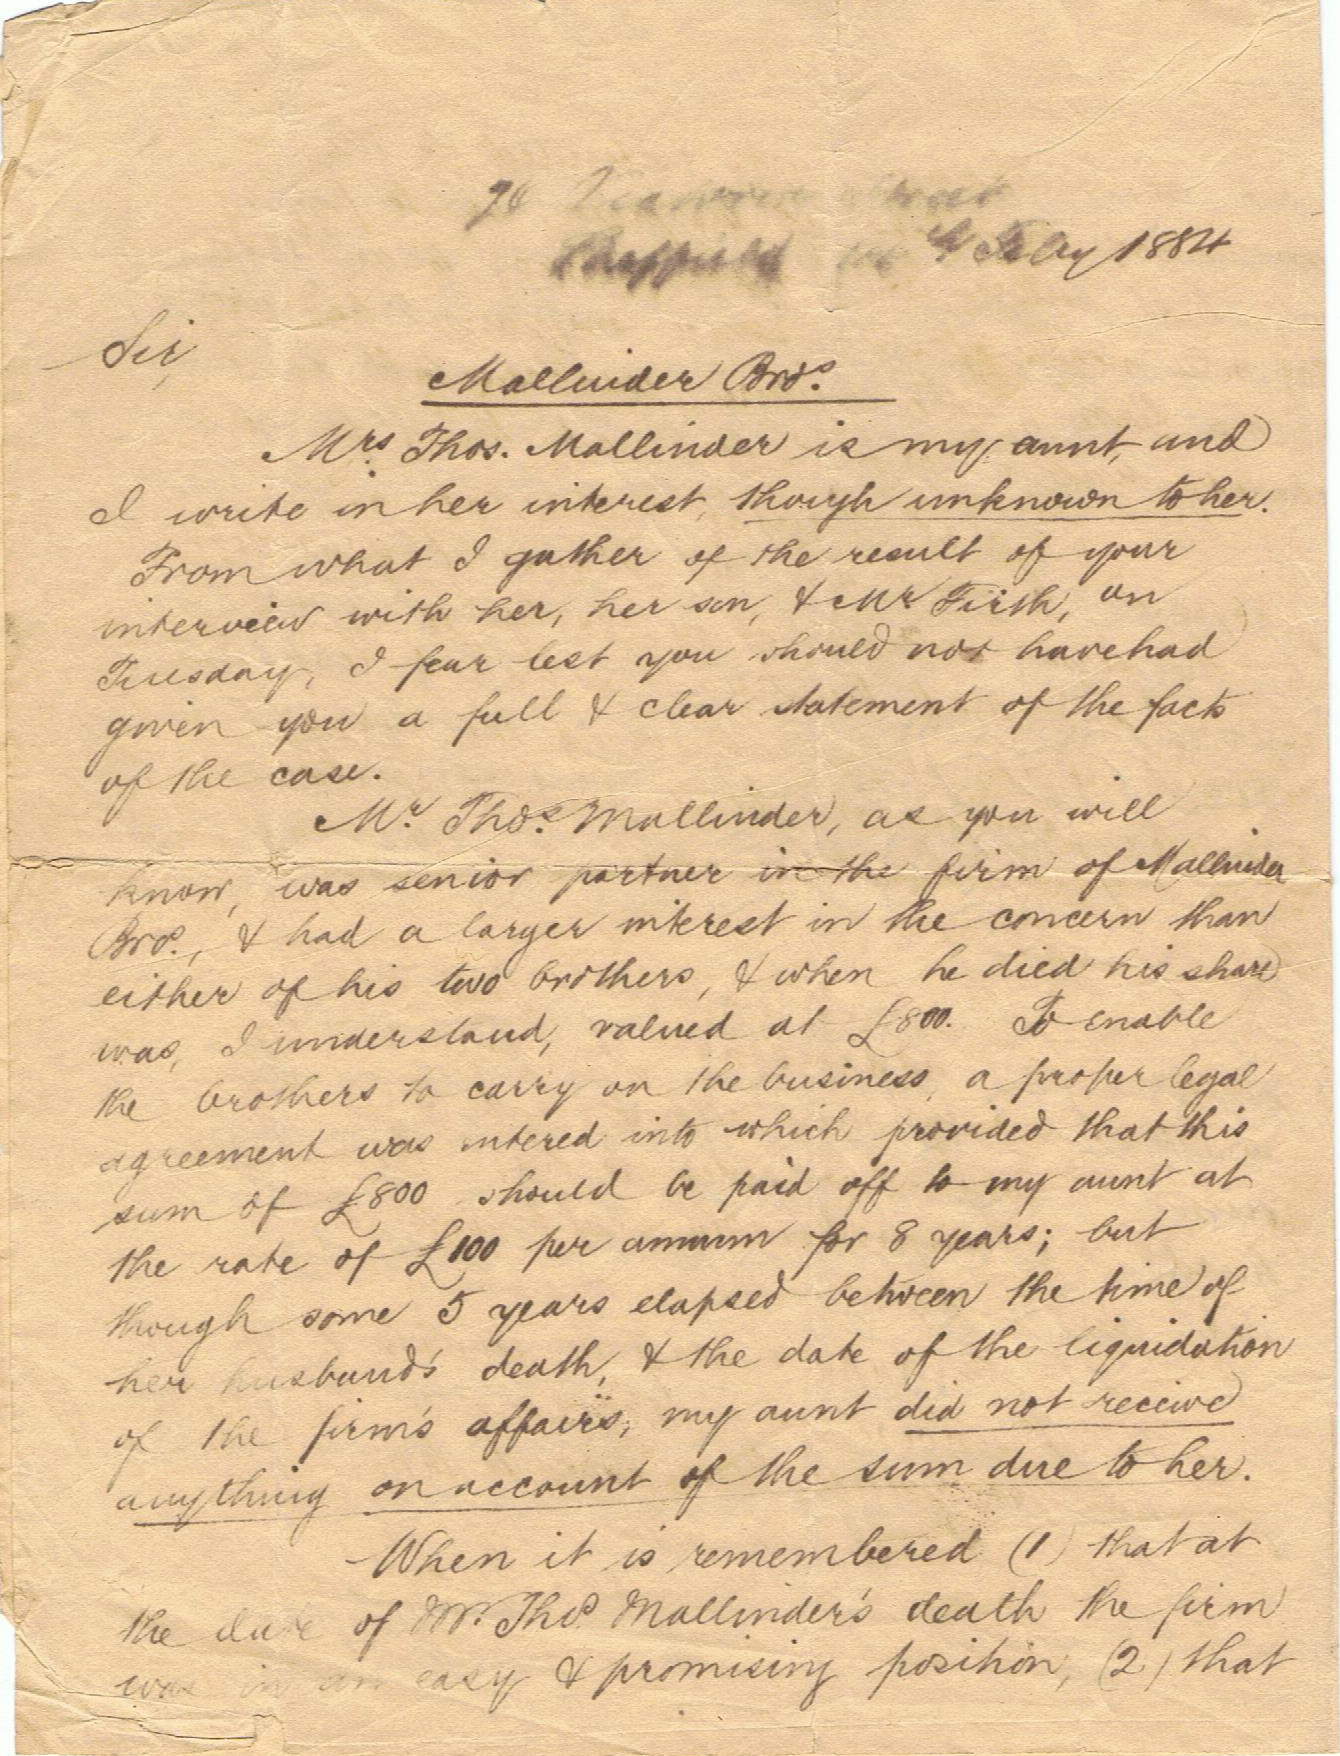 Street
Sheffield Feby 1884
Sir,
Mallinder Bros.
Mrs. Thos. Mallinder is my aunt, and
I write in her interest, though unknown to her.
From what I gather of the result of your
interview with her, her son, & Mr Firth, on
Tuesday, I fear lest you should not have had
given you a full & clear statement of the facts
of the case.
Mr. Thos. Mallinder, as you will
know, was senior partner in the firm of Mallinder
Bros., & had a larger interest in the concern than
either of his two brothers, & when he died his share
was, I understand, valued at £800. To enable
the brothers to carry on the business, a proper legal
agreement was entered into which provided that this
sum of £800 should be paid off to my aunt at
the rate of £100 per annum for 8 years; but
though some 5 years elapsed between the time of
her husband's death, & the date of the liquidation
of the firm's affairs, my aunt did not receive
anything on account of the sum due to her.
When it is remembered (1) that at
the date of Mr. Thos. Mallinder's death the firm
was in an easy & promising position, (2) that